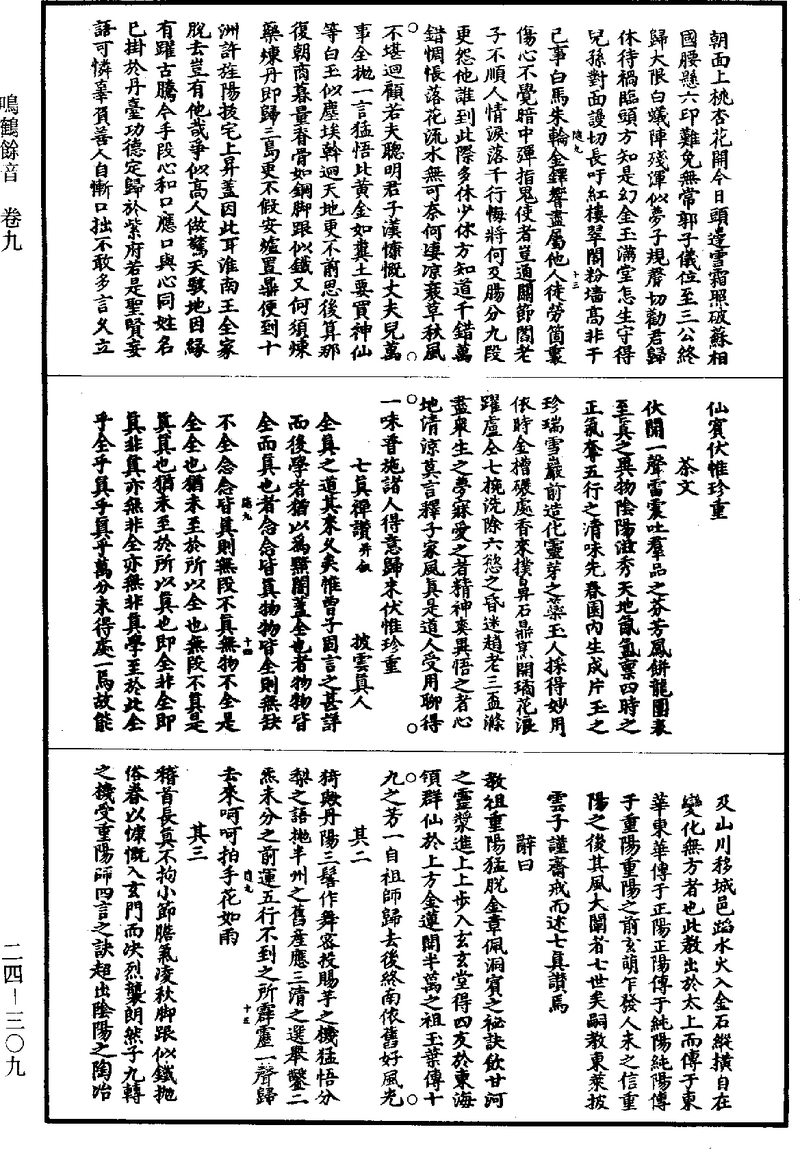 朝面上桃杏花開今日頭邊雪霜照破蘇相
國腰懸六印難免無常郭子儀位至三公終
歸大限白蟻陣殘渾似夢子規聲切勸君歸
休待禍臨頭方知是幻金玉滿堂怎生守得
兒孫對面護切長吁紅樓翠閣粉墻高非干
隨九
十三
已事白馬朱輪金鐸響盡屬他人徒勞箇裏
傷心不覺暗中彈指鬼使者豈通關節閻老
子不順人情淚落千行悔將何及腸分九段
更怨他誰到此際多休少休方知道千錯萬
錯惆悵落花流水無可奈何淒凉衰草秋風
不堪迴顧若夫聰明君子漢慷慨丈夫兒萬
事全拋一言猛悟比黃金如糞土要買神仙
等白玉似塵埃斡迴天地更不前思後算那
復朝商暮量脊骨如鋼脚跟似鐵又何須煉
藥煉丹即歸三島更不假安爐置鼎便到十
洲許旌陽拔宅上昇蓋因此耳淮南王全家
脫去豈有他哉爭似高人做驚天駭地因緣
有躍古騰今手段心和口應口與心同姓名
已掛於丹臺功德定歸於紫府若是聖賢妄
語可憐辜負善人自慚口拙不敢多言久立
仙賓伏惟珍重
茶文
伏聞一聲雷震吐羣品之芬芳鳳餅龍團表
至真之異物陰陽滋秀天地氤氳稟四時之
正氣奪五行之清味先春園內生成片玉之
珍瑞雪巖前造化靈芽之藥玉人採得妙用
依時金槽碾處香來撲鼻石鼎烹開璚花浪
躍盧仝七椀洗除六慾之昏迷趙老三盃滌
盡衆生之夢寐愛之者精神爽異悟之者心
地清涼莫言釋子家風真是道人受用聊得
一味普施諸人得意歸來伏惟珍重
七真禪讚并叙
披雲真人
全真之道其來久矣惟曾子固言之甚詳
而後學者猶以為黯闇蓋全也者物物皆
全而真也者念念皆真物物皆全則無缺
隨九
十四
不全念念皆真則無段不真無物不全是
全全也猶未至於所以全也無段不真是
真真也猶未至於所以真也即全非全即
真非真亦無非全亦無非真學至於此全
乎全乎真乎真乎萬分未得處一焉故能
及山川移城邑蹈水火入金石縱橫自在
變化無方者也此教出於太上而傳于東
華東華傳于正陽正陽傳于純陽純陽傳
于重陽重陽之前玄萌乍發人未之信重
陽之後其風大闡者七世矣嗣教東萊披
雲子謹齋戒而述七真讚焉
辭曰
教祖重陽猛脫金章佩洞賓之祕訣飲甘河
之靈漿進上上步入玄玄堂得四友於東海
領群仙於上方金蓮開半萬之祖玉葉傳十
九之芳一自祖師歸去後終南依舊好風光
其二
猗歟丹陽三髻作舞密投賜芋之機猛悟分
梨之語拋半州之舊産應三清之選舉鑿二
炁未分之前運五行不到之所霹靂一聲歸
隨九
十五
去來呵呵拍手花如雨
其三
稽首長真不拘小節膽氣凌秋脚跟似鐵拋
俗眷以慷慨入玄門而決烈襲朗然子九轉
之機受重陽師四言之訣超出陰陽之陶冶
鳴鶴餘音 卷九
二四—三〇九